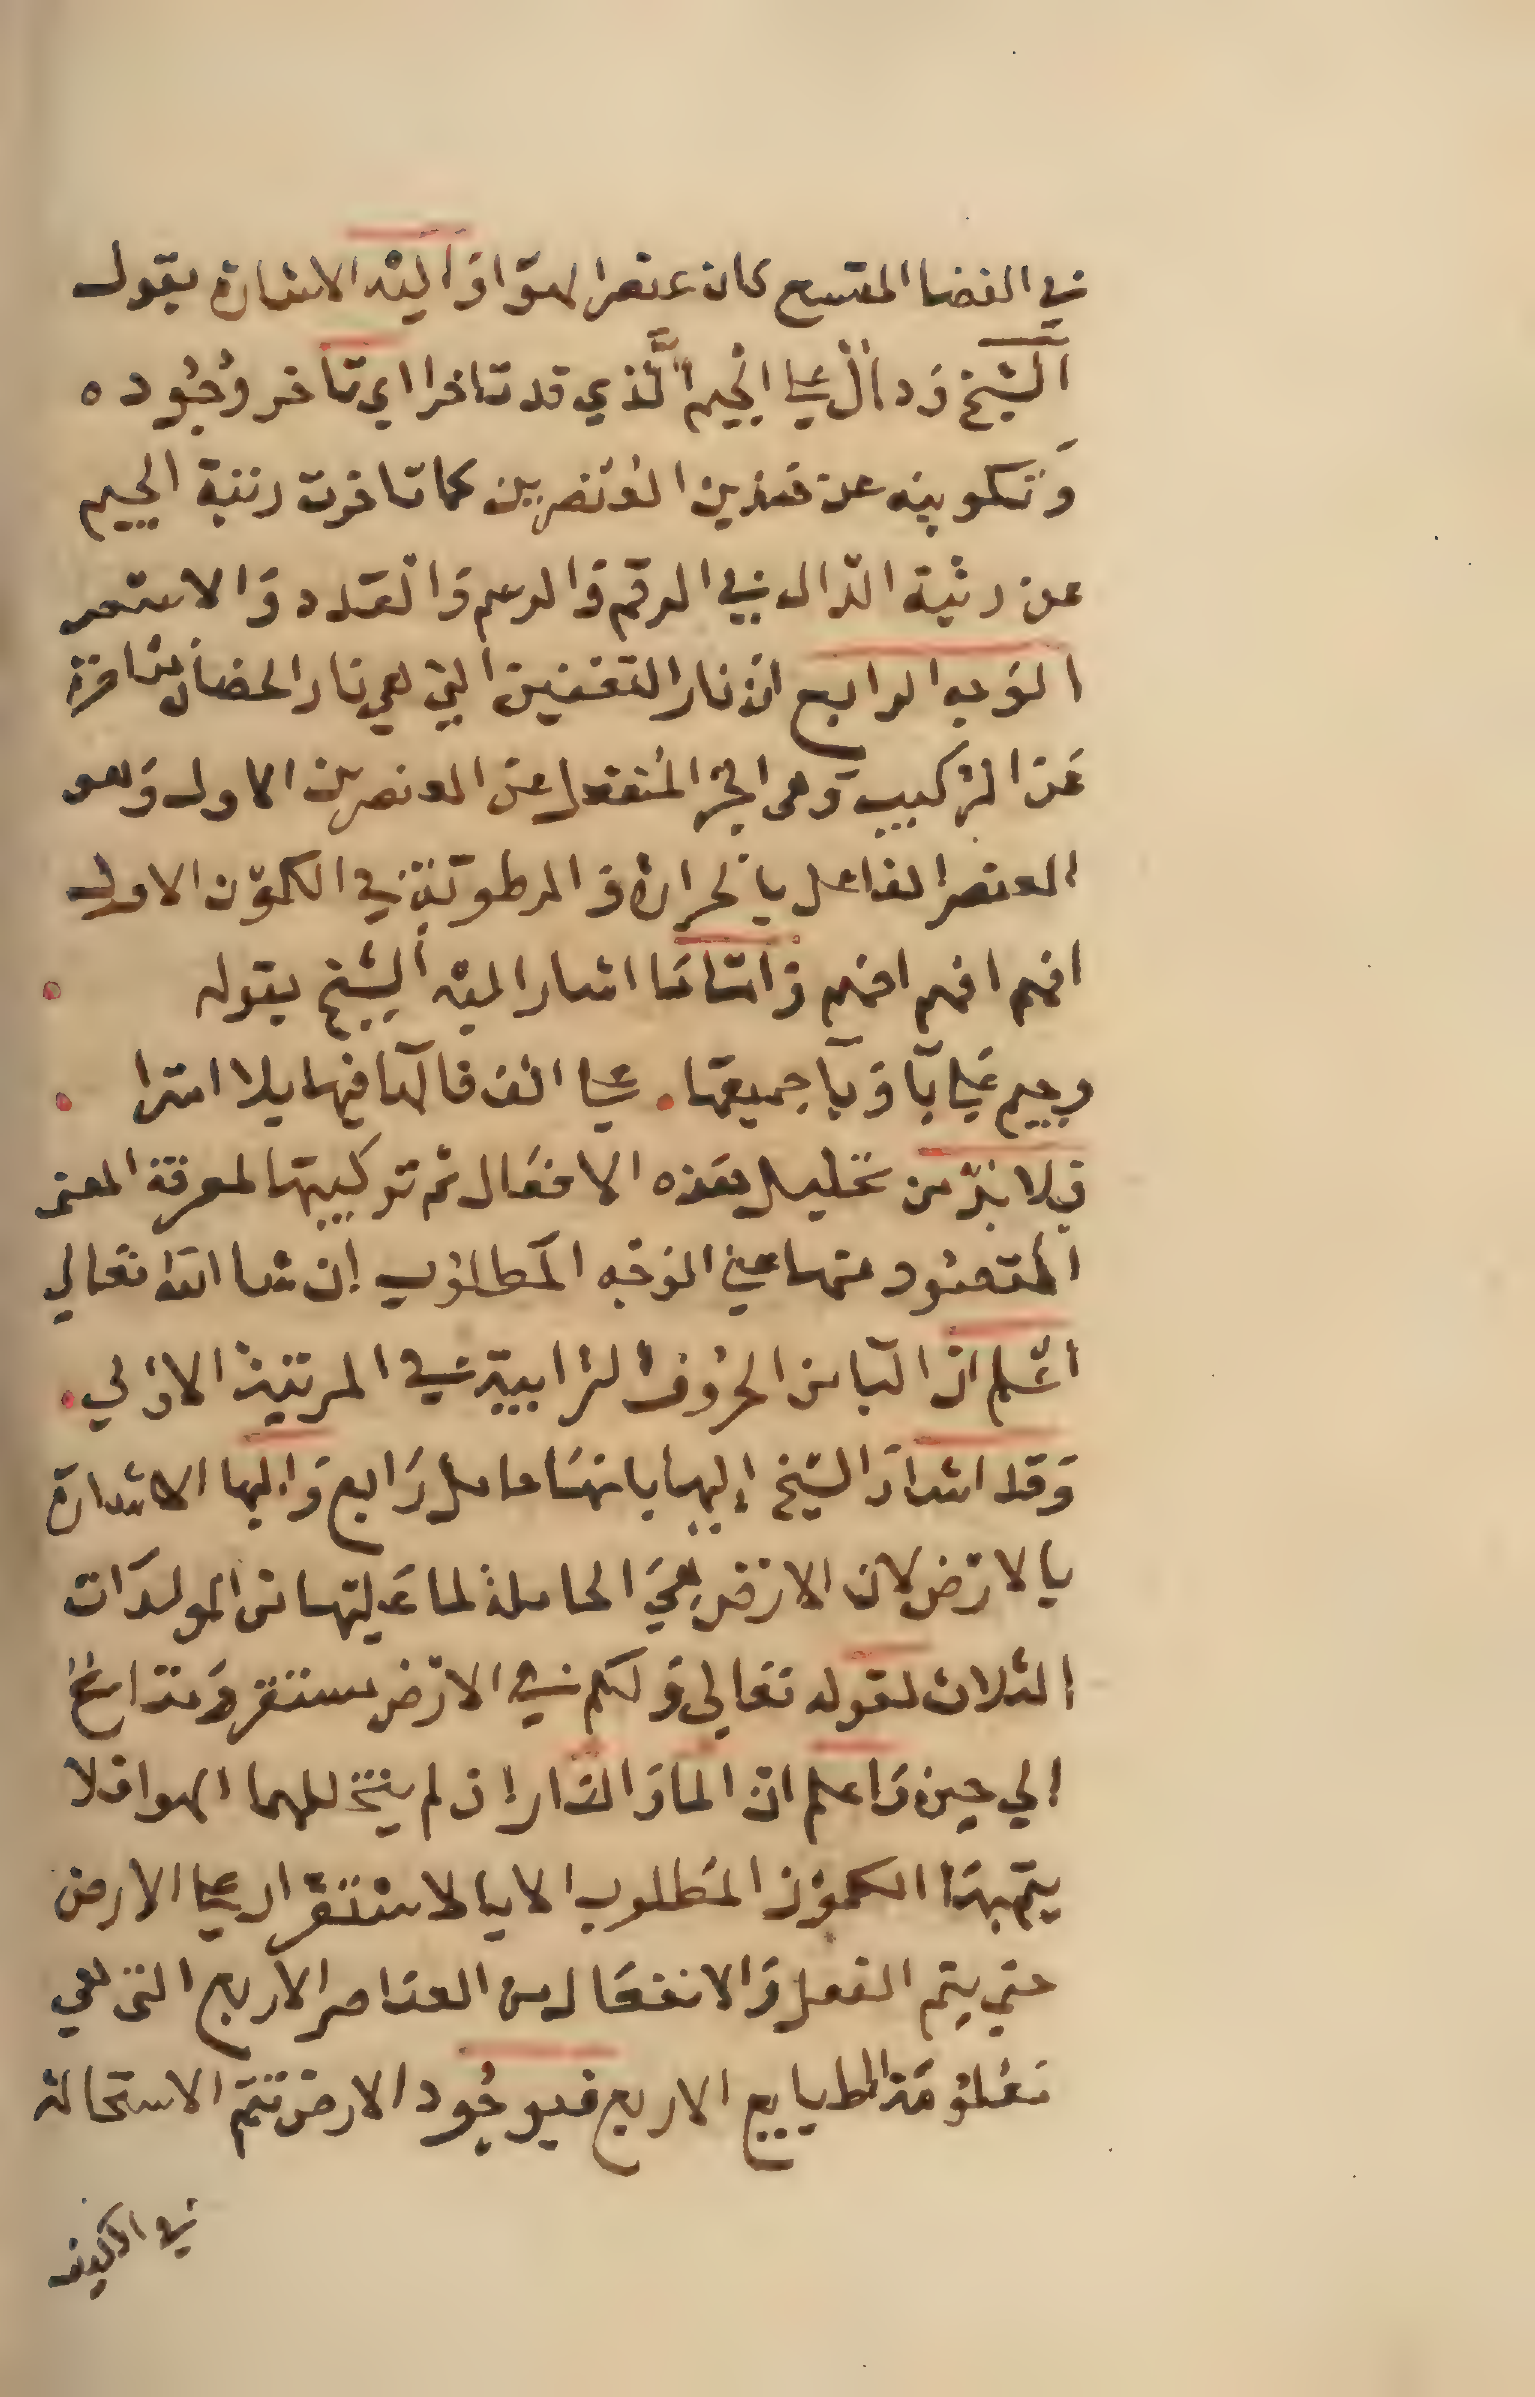 في الفضا المتسع كان عنصر الهوا واليه الاشارة بقول
الشيخ ودال علي الجيم الذي قد تاخرا اي تاخر وجوده
وتكوينه عن هذين العنصرين كما تاخرت رتبة الجيم
عن رتبة الدال في الرقم والرسم والعدد والاسم
الوجه الرابع ان نار التعفين التي هي نار الحضان متاخرة
عن التركيب وهي الجز المنفصل عن العنصرين الاول وهو
العنصر الفاعل بالحرارة والرطوبة في الكون الاول
افهم افهم افهم واما ما اشار اليه الشيخ بقوله
وجيم علي با وبا جميعها . علي الف فالها فيها بلا امترا
فلا بد من تحليل هذه الافعال ثم تركيبها لمعرفة المعنى
المقصود منها علي الوجه المطلوب ان شا الله تعالي
اعلم ان البا من الحروف الترابية في المرتبة الاولي .
وقد اشار الشيخ اليها بانها حامل رابع واليها الاشارة
بالارض لان الارض هي الحاملة لما عليها من المولدات
الثلاث لقوله تعالي ولكم في الارض مستقر ومتاع
الي حين واعلم ان الما والنار ان لم يتخللهما الهوا فلا
يتم بهذا الكون المطلوب الا بالاستقرار علي الارض
حتي يتم الفعل والانفعال من العناصر الاربع التي هي
معلومة الطبايع الاربع فبوجود الارض تتم الاستحالة
في الكيف